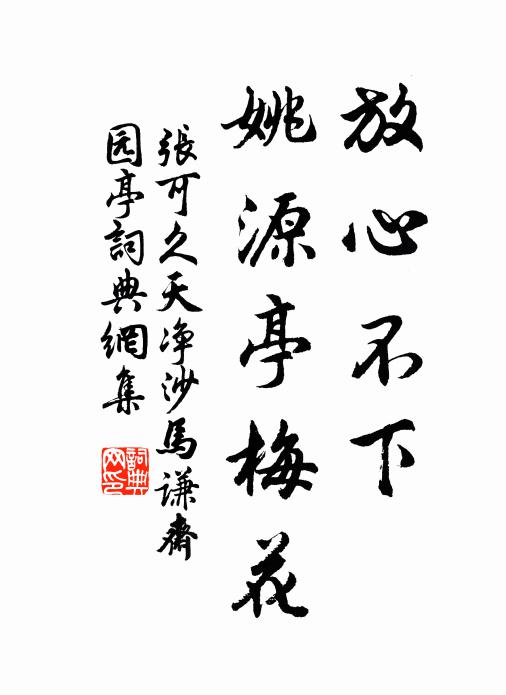 放心不下
姚源亭梅花
張可久天净沙馬謙齋
园亭詞典網集
詞典网印